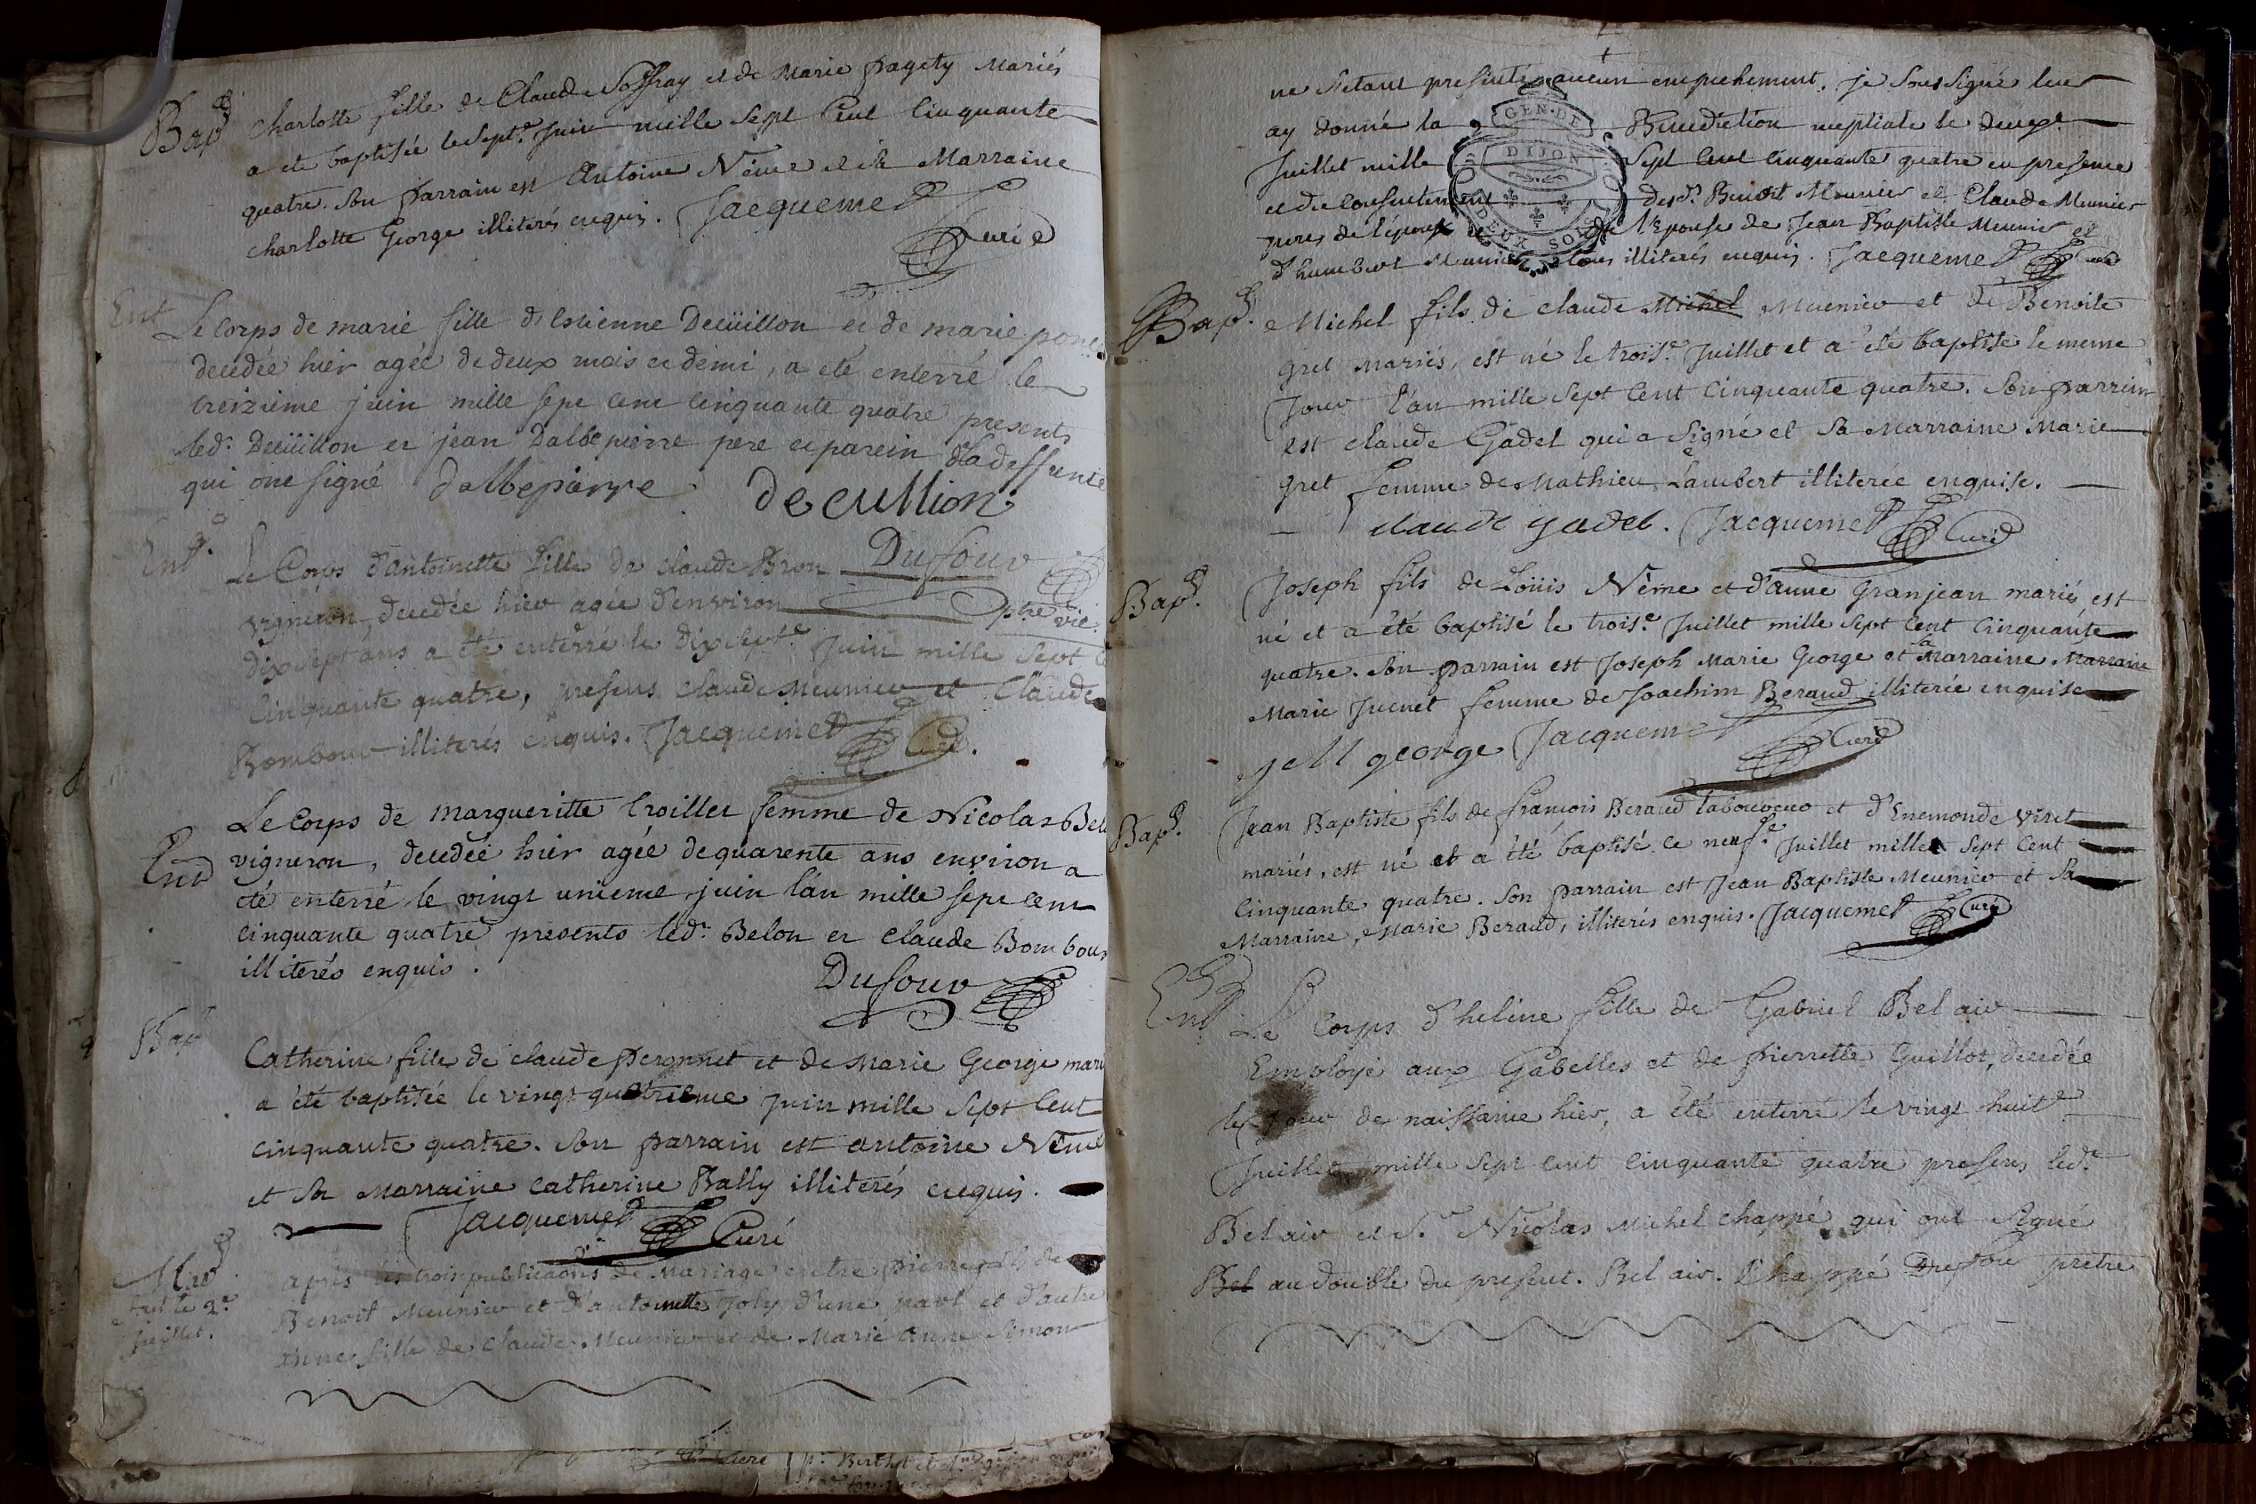 Bap.
Charlotte fille de Claude Soffray et de Marie pagety Mariés
a ete baptisée le sept.e Juin mille sept Cent Cinquante
quatre. Son parrain est Antoine Nême et sa Marraine
charlotte George illiterés enquis. Jacquemet
Curé
Ent
Le Corps de marie fille d'estienne Decüillon et de marie
decedée hier agée de deux mois et demi, a eté enterré le
treizieme juin mille sept cent cinquante quatre presents
led. Decüillon et jean Dalbepierre pere et parein de la deffunte
qui ont signé dalbepierre decullion
Ent.
Dufour
Le Corps d'antoinette fille de claude Bron
ptre vic.
vigneron, decedée hier agée d'environ
dixsept ans a été enterré le dix sept.e Juin mille Sept
Cinquante quatre, presens Claude Meunier et Claude
Bombour illiterés enquis. Jacquemet Curé.
Ent
Le Corps de margueritte Croillet femme de Nicolas
vigneron, decedée hier agée de quarente ans environ a
eté enterré le vingt unieme juin l'an mille sept cent
cinquante quatre presents led. Belon et claude Bombour
illiterés enquis.
Dufour
Bap
Catherine fille de claude Peronnet et de Marie George
a été baptisée le vingt quatrieme Juin mille Sept Cent
cinquante quatre. Son parrain est antoine Nême
et sa Marraine Catherine Bally illiterés enquis.
Jacquemet Curé
Mar
fait le 2.e
Juillet.
après les trois publications de Mariage entre pierre fils de
Benoit Meunier et d'antoinette Joly d'une part et d'autre
Anne fille de Claude Meunier et de Marie anne Simon
ne s'etant presenté aucun empechement. je Soussigné leur
ay donné la Benediction nuptiale le deux.e
GEN. DE DIJON
DEUX SOLS
Juillet mille Sept Cent Cinquante quatre en presence
et du Consentement desd. Benoit Meunier et Claude Meunier
peres de l'epoux et de l'Epouse de Jean Baptiste Meunier et
d'humbert Meunier tous illiterés enquis. Jacquemet Curé
Bap.
Michel fils de claude Michel Meunier et de Benoite
gret mariés, est né le trois.e Juillet et a été baptisé le meme
Jour l'an mille Sept Cent Cinquante quatre. Son parrein
est claude Gadel qui a Signé et Sa Marraine Marie
gret femme de Mathieu Lambert illiterée enquise.
claude gadel. Jacquemet Curé
Bap.
Joseph fils de Loüis Nême et d'anne Granjean mariés est
né et a été baptisé le trois.e Juillet mille Sept Cent Cinquante
quatre. Son parrain est Joseph Marie George et sa Marraine Marraine
Marie Jucnet femme de Joachim Beraud illiterée enquise
J M george Jacquemet Curé
Bap.
Jean Baptiste fils de françois Beraud laboureur et d'Enemonde Viret
mariés, est né et a été baptisé le neuf.e Juillet mille Sept Cent
Cinquante quatre. Son parrain est Jean Baptiste Meunier et Sa
Marraine, Marie Beraud, illiterés enquis. Jacquemet Curé
Ent
Le Corps d'helène fille de Gabriel Bel air
Employé aux Gabelles et de pierrette Guillot, decedée
le jour de naissance hier, a été enterré le vingt huit.e
Juillet mille Sept cent Cinquante quatre presens led.
Bel air et S.r Nicolas Michel Chappé qui ont Signé
Bel au double du present. Bel air. Chappé Dufour pretre